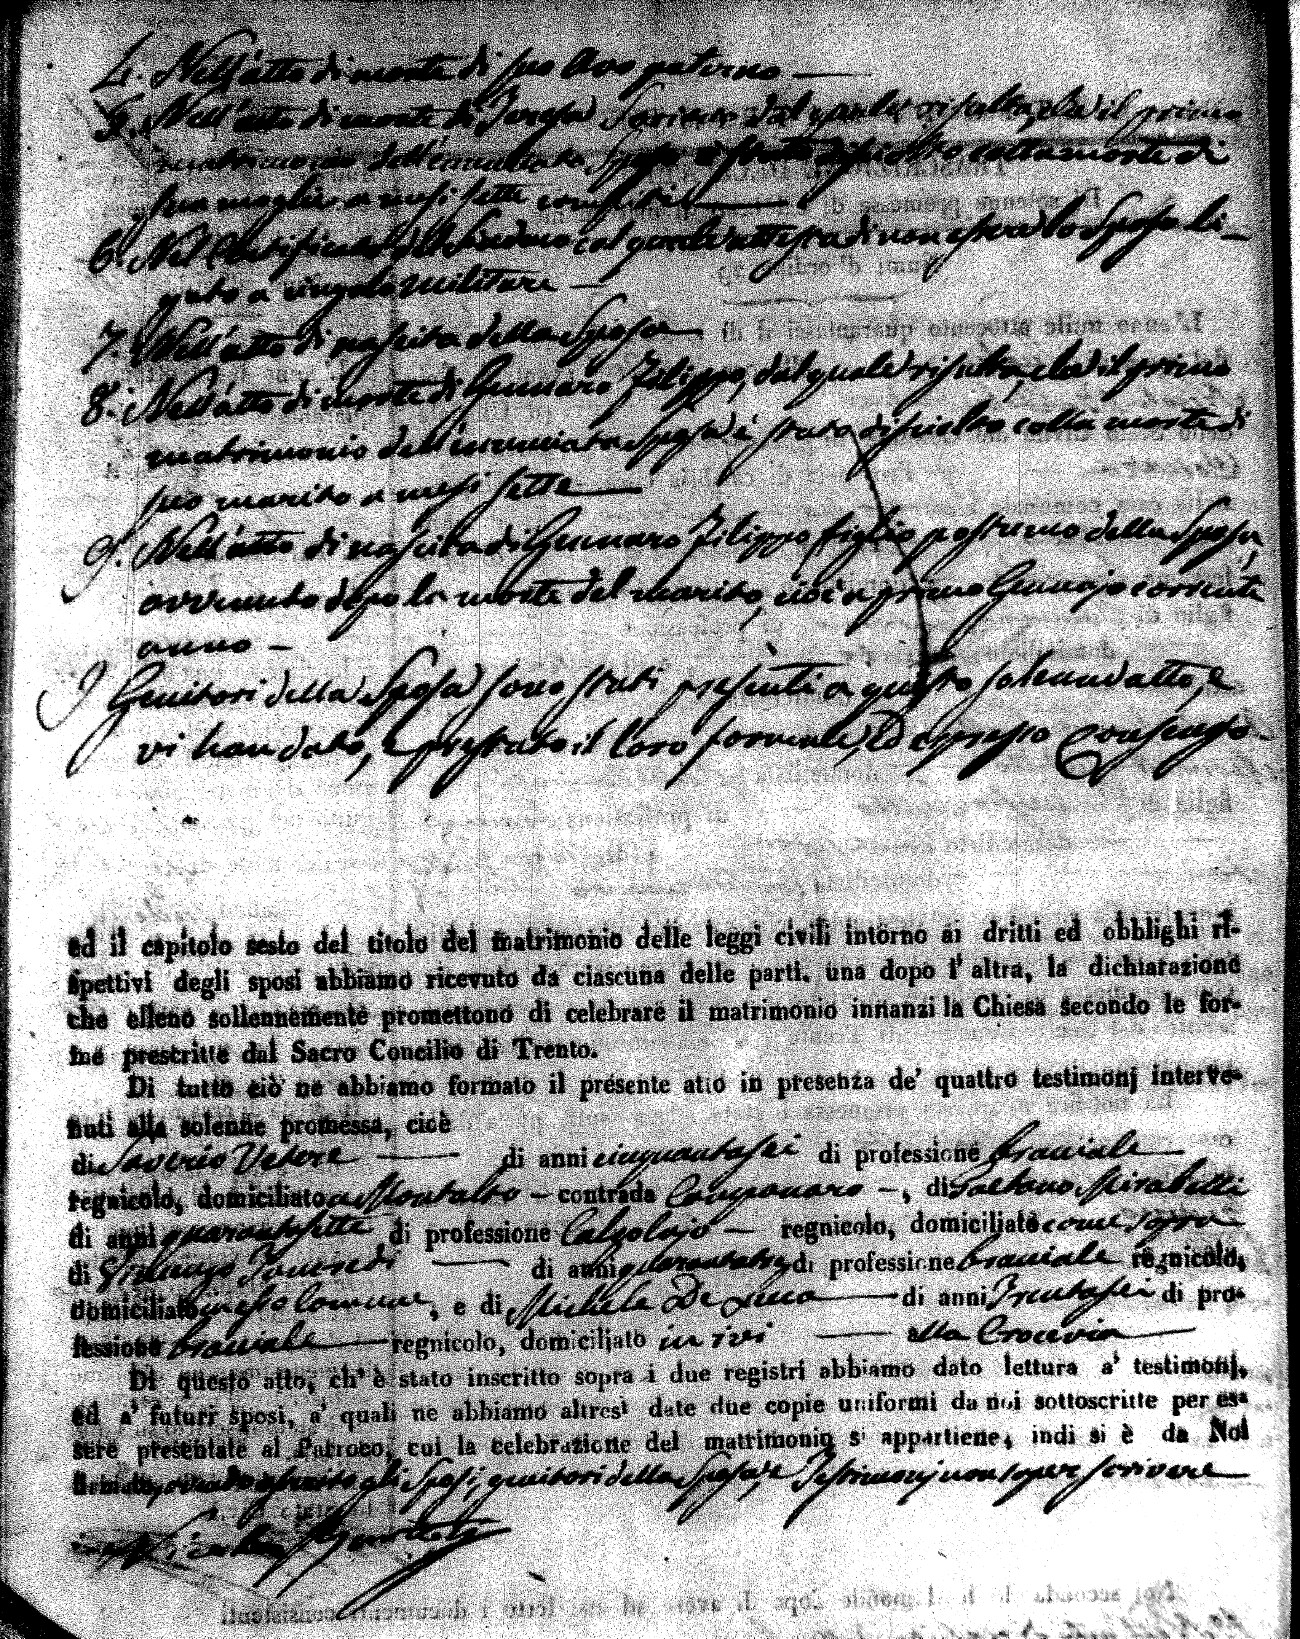 4. Nell'atto di morte di suo Avo paterno —
5. Nell'atto di morte di Soriano dal quale risulta, che il primo
matrimonio dell'enunciato Sposo è stato disciolto colla morte di
sua moglie a mesi sette compiti —
6. Nel Certificato del Sindaco col quale attesta di non essere lo Sposo Li-
gato a cingolo militare —
7. Nell'atto di nascita della Sposa —
8. Nell'atto di morte di Gennaro Filippo, dal quale risulta, che il primo
matrimonio dell'enunciata Sposa è stato disciolto colla morte di
suo marito a mesi sette —
9. Nell'atto di nascita di Gennaro Filippo figlio postumo della Sposa,
avvenuto dopo la morte del marito, cioè a primo Gennajo corrente
anno —
I Genitori della Sposa sono stati presenti a questo solenne atto, e
vi han dato, e prestato il loro formale, ed espresso Consenso -
ed il capitolo sesto del titolo del matrimonio delle leggi civili intorno ai dritti ed obblighi ri-
spettivi degli sposi abbiamo ricevuto da ciascuna delle parti. una dopo l' altra, la dichiarazione
che elleno sollennemente promettono di celebrare il matrimonio innanzi la Chiesa secondo le for-
me prescritte dal Sacro Concilio di Trento.
Di tutto ciò ne abbiamo formato il presente atto in presenza de' quattro testimonj interve-
nuti alla solenne promessa, cioè
di Saverio Vetere — di anni cinquantasei di professione bracciale —
regnicolo, domiciliato a Montalto — contrada Camponaro —, di Gaetano Mirabelli
di anni quarantasette di professione Calzolajo — regnicolo, domiciliato come sopra
di — di anni quarantatre di professione bracciale regnicolo,
domiciliato in esso Comune, e di Michele De Luca — di anni Trentasei di pro-
fessione bracciale — regnicolo, domiciliato in ivi — alla Crocevia —
Di questo atto, ch' è stato inscritto sopra i due registri abbiamo dato lettura a' testimonj,
ed a' futuri sposi, a' quali ne abbiamo altresì date due copie uniformi da noi sottoscritte per es-
sere presentate al Parroco, cui la celebrazione del matrimonio si appartiene, indi si è da Noi
firmato, avendo asserito gli Sposi, genitori della Sposa, e Testimonj non saper scrivere —
Nicola